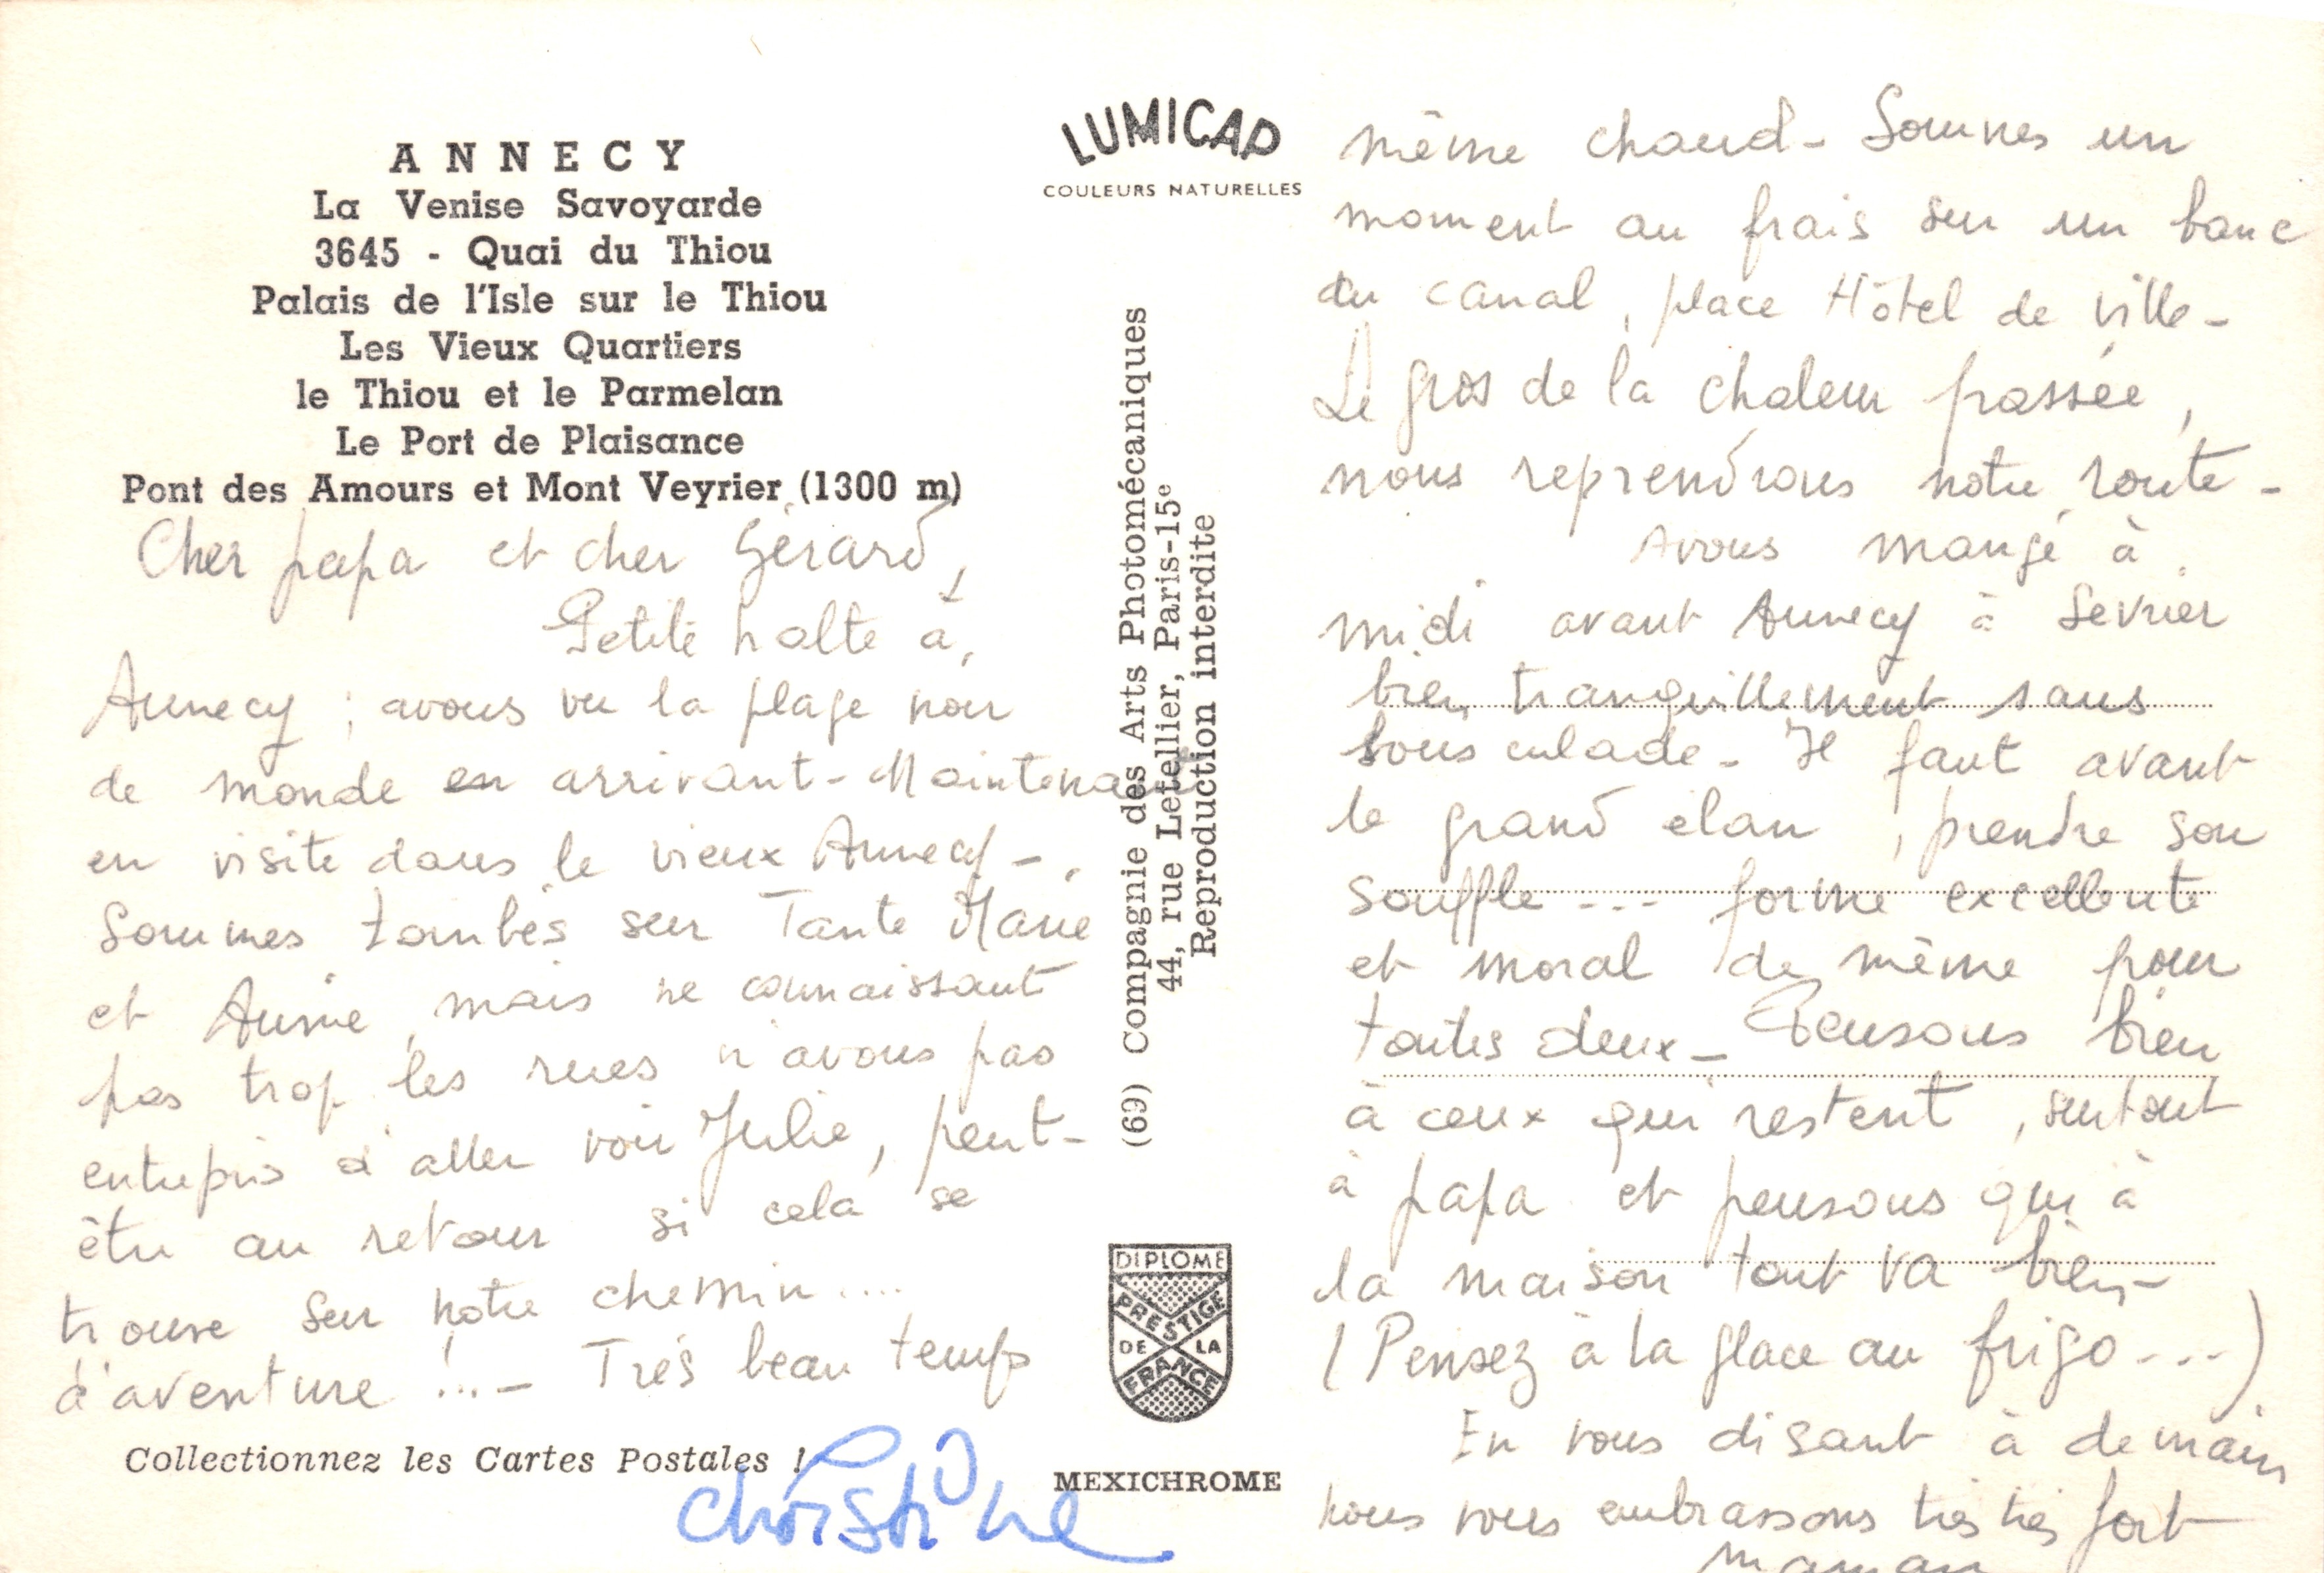 ANNECY
La Venise Savoyarde
3645 - Quai du Thiou
Palais de l'Isle sur le Thiou
Les Vieux Quartiers
le Thiou et le Parmelan
Le Port de Plaisance
Pont des Amours et Mont Veyrier (1300 m)
Cher papa et cher Gérard,
Petite halte à
Annecy ; avons vu la plage noir
de monde en arrivant - Maintenant
en visite dans le vieux Annecy -
Sommes tombés sur Tante Marie
et Annie, mais ne connaissant
pas trop les rues n'avons pas
entrepris d'aller voir Julie, peut-
être au retour si cela se
trouve sur notre chemin....
d'aventure !... - Très beau temps
Collectionnez les Cartes Postales !
Christine
LUMICAP
COULEURS NATURELLES
(69) Compagnie des Arts Photomécaniques
44, rue Letellier, Paris-15e
Reproduction interdite
DIPLOME
PRESTIGE
DE LA
FRANCE
MEXICHROME
même chaud - Sommes un
moment au frais sur un banc
du canal, place Hôtel de ville -
Le gros de la chaleur passée,
nous reprendrons notre route -
Avons mangé à
midi avant Annecy à Sevrier
bien tranquillement sans
bousculade - Il faut avant
le grand élan, prendre son
souffle --- forme excellente
et moral de même pour
toutes deux - Pensons bien
à ceux qui restent, surtout
à papa et pensons qui à
la maison tout va bien -
(Pensez à la glace au frigo ---)
En vous disant à demain
nous vous embrassons très très fort
maman